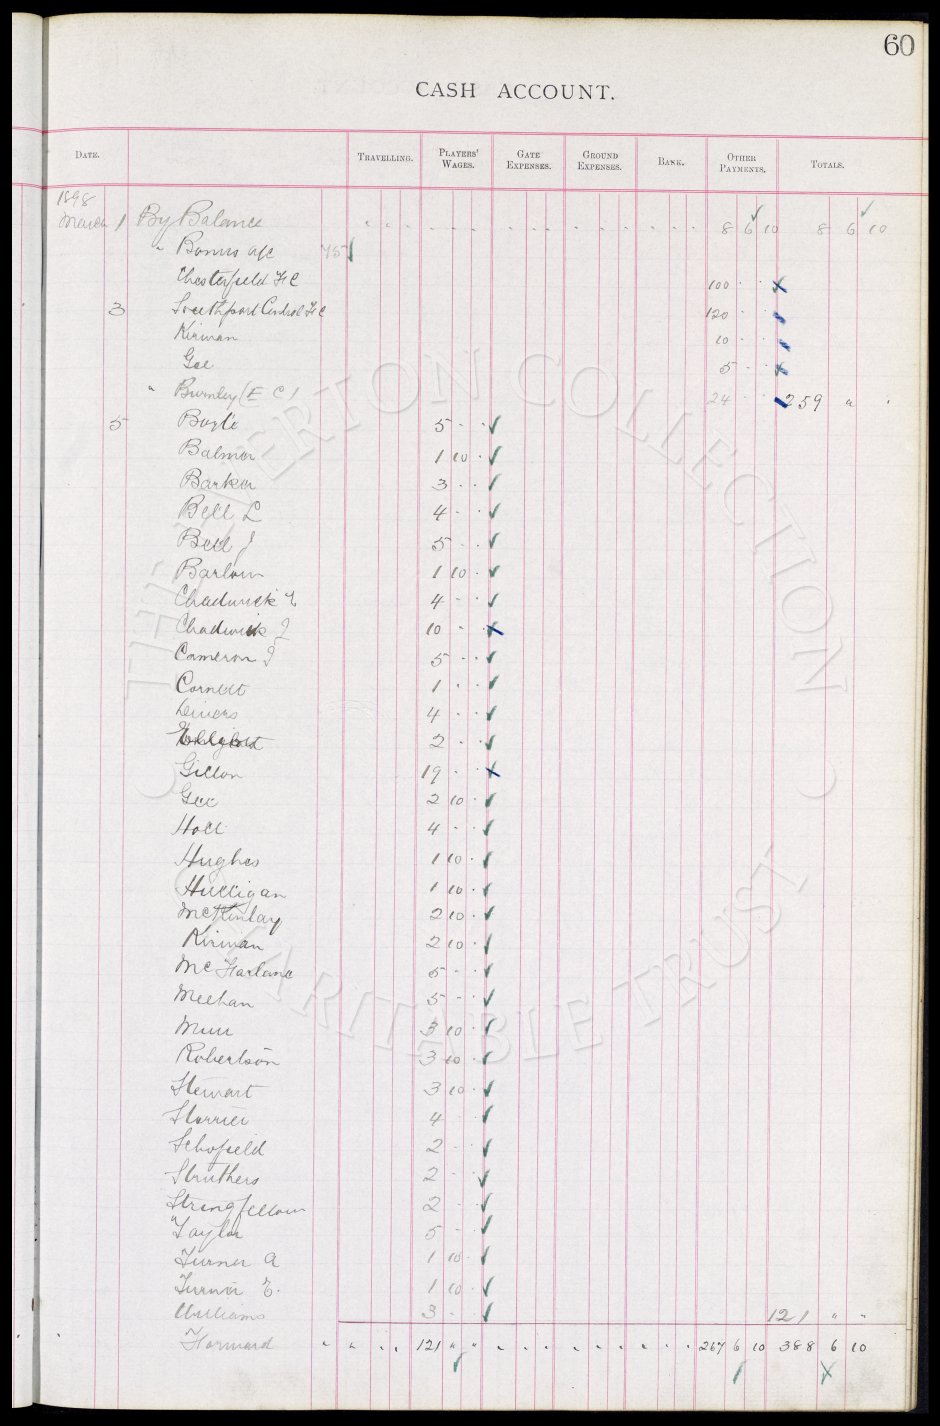 60
CASH ACCOUNT.
DATE. TRAVELLING. PLAYERS' WAGES. GATE EXPENSES. GROUND EXPENSES. BANK. OTHER PAYMENTS. TOTALS.
1898
March 1 By Balance 8 6 10 8 6 10
" Bonus a/c 757
Chesterfield F C 100 . .
3 Southport Central F C 120 . .
Kirwan 10 . .
Gee 5 . .
" Burnley (E C) 24 . . 259 " "
5 Boyle 5 . .
Balmer 1 10 .
Barker 3 . .
Bell L 4 . .
Bell J 5 . .
Barlow 1 10 .
Chadwick E 4 . .
Chadwick J 10 . .
Cameron J 5 . .
Cornett 1 . .
Divers 4 . .
2 . .
Gillon 19 . .
Gee 2 10 .
Holt 4 . .
Hughes 1 10 .
Hulligan 1 10 .
McKinlay 2 10 .
Kirwan 2 10 .
McFarlane 5 . .
Meehan 5 . .
Muir 3 10 .
Robertson 3 10 .
Stewart 3 10 .
Storrier 4 . .
Schofield 2 . .
Struthers 2 . .
Stringfellow 2 . .
Taylor 5 . .
Turner A 1 10 .
Turner E. 1 10 .
Williams 3 . . 121 " "
Forward 121 " " 267 6 10 388 6 10
THE EVERTON COLLECTION CHARITABLE TRUST